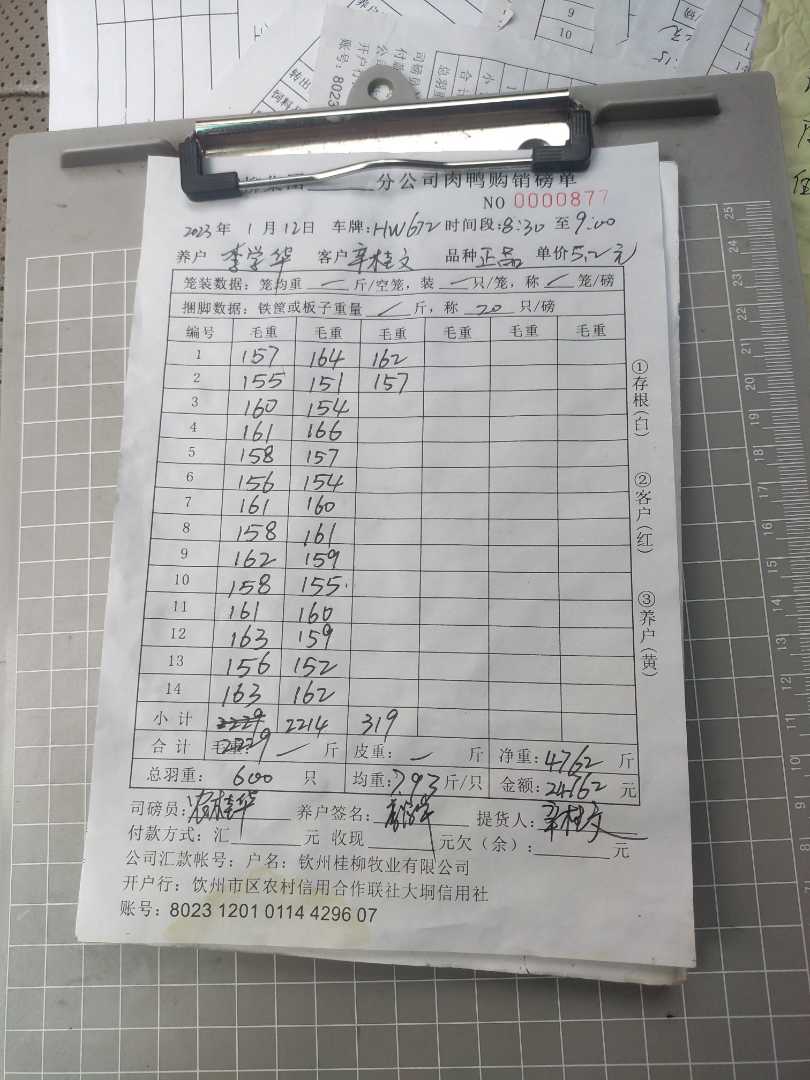 分公司肉鸭购销磅单
NO 0000877
2023年 1月12日 车牌:HW672 时间段:8:30 至9:00
养户 李学华 客户 辛桂文 品种 正品 单价5.2元
笼装数据:笼均重 — 斤/空笼,装 — 只/笼,称 — 笼/磅
捆脚数据:铁筐或板子重量 — 斤,称 20 只/磅
编号 毛重 毛重 毛重 毛重 毛重 毛重
1 157 164 162
2 155 151 157
3 160 154
4 161 166
5 158 157
6 156 154
7 161 160
8 158 161
9 162 159
10 158 155
11 161 160
12 163 159
13 156 152
14 163 162
小计 2229 2214 319
合计 毛重: 2229 — 斤 皮重: — 斤 净重:4762 斤
总羽重: 600 只 均重:7.93斤/只 金额:24762 元
司磅员: 养户签名: 提货人:辛桂文
付款方式:汇 元 收现 元欠(余): 元
公司汇款帐号:户名:钦州桂柳牧业有限公司
开户行:钦州市区农村信用合作联社大垌信用社
账号:8023 1201 0114 4296 07
①存根(白)
②客户(红)
③养户(黄)